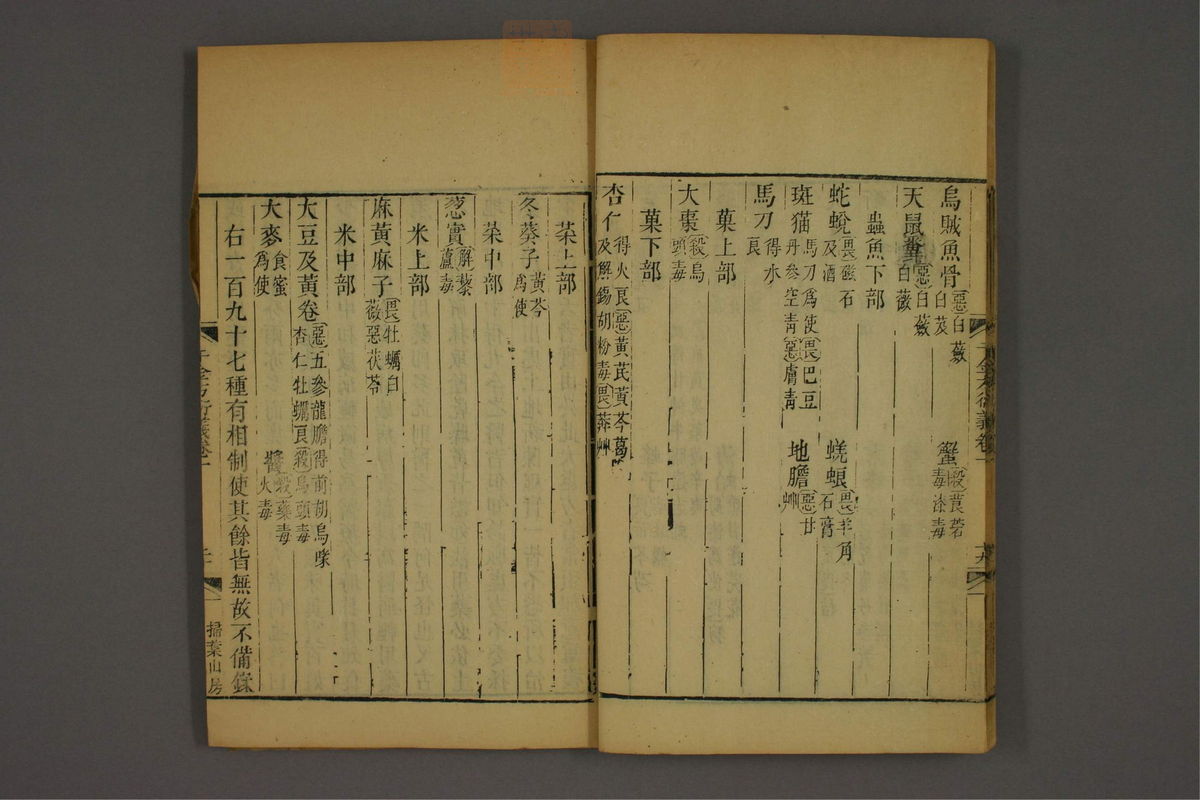 烏賊魚骨惡白蘞白芨　蟹殺莨菪毒漆毒
天鼠糞惡白蘞白薇
蟲魚下部
蛇蛻畏磁石及酒　蜣蜋畏羊角石膏
斑猫馬刀爲使畏巴豆丹參空青惡膚青　地膽惡甘艸
馬刀得水良
菓上部
大棗殺烏頭毒
菓下部
杏仁得火良惡黃芪黃芩葛及解錫胡粉毒畏莽艸
千金方衍義卷一
菜上部
冬葵子黃芩爲使
菜中部
葱實解藜蘆毒
米上部
麻黃麻子畏牡蠣白薇惡茯苓
米中部
大豆及黃卷惡五參龍膽得前胡烏喙杏仁牡蠣良殺烏頭毒
大麥食蜜爲使　醬殺藥毒火毒
右一百九十七種有相制使其餘皆無故不備錄
千金方衍義卷一
掃葉山房